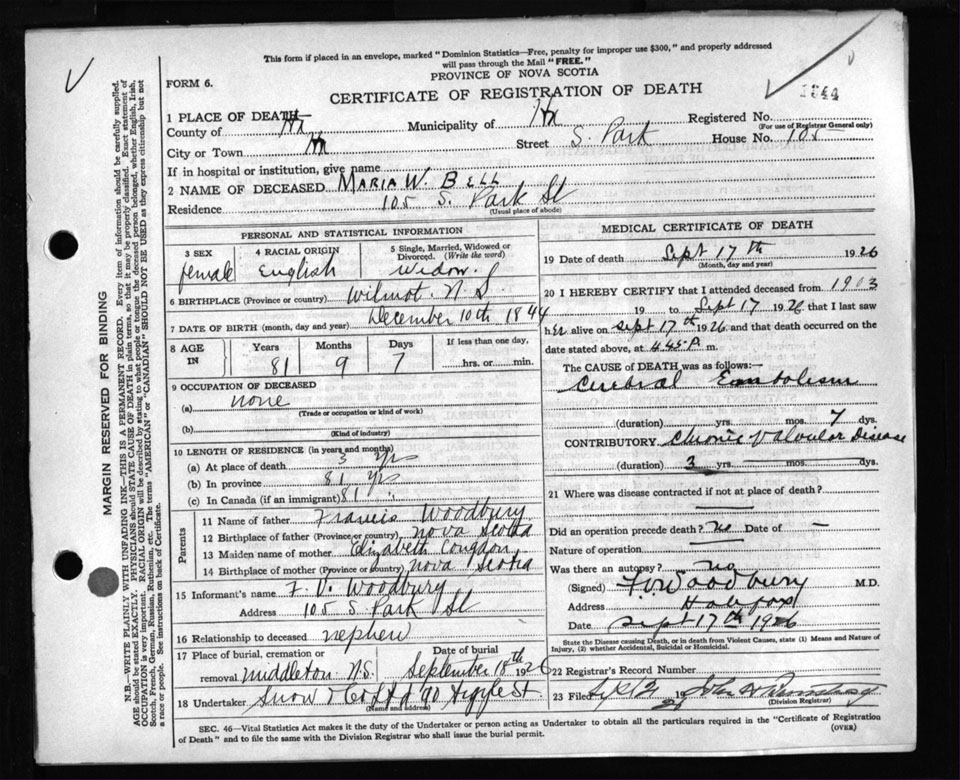 This form if placed in an envelope, marked "Dominion Statistics—Free, penalty for improper use $300," and properly addressed
will pass through the Mail "FREE."
PROVINCE OF NOVA SCOTIA
FORM 6.
CERTIFICATE OF REGISTRATION OF DEATH
1 PLACE OF DEATH
County of Hx Municipality of Hx Registered No.
(For use of Registrar General only)
City or Town Hx Street S. Park House No. 105
If in hospital or institution, give name
2 NAME OF DECEASED MARIA W. BELL
Residence 105 S. Park St
(Usual place of abode)
PERSONAL AND STATISTICAL INFORMATION
3 SEX 4 RACIAL ORIGIN 5 Single, Married, Widowed or
Divorced. (Write the word)
female English Widow.
6 BIRTHPLACE (Province or country) Wilmot. N.S.
7 DATE OF BIRTH (month, day and year) December 10th 1844
8 AGE IN Years Months Days If less than one day,
81 9 7 hrs. or min.
9 OCCUPATION OF DECEASED
(a) none
(Trade or occupation or kind of work)
(b)
(Kind of industry)
10 LENGTH OF RESIDENCE (in years and months)
(a) At place of death 3 yrs
(b) In province 81 yrs
(c) In Canada (if an immigrant) 81 "
Parents
11 Name of father Francis Woodbury
12 Birthplace of father (Province or country) Nova Scotia
13 Maiden name of mother Elizabeth Congdon
14 Birthplace of mother (Province or country) Nova Scotia
15 Informant's name F. V. Woodbury
Address 105 S. Park St
16 Relationship to deceased nephew
17 Place of burial, cremation or removal Date of burial
Middleton N.S. September 18th 1926
18 Undertaker Snow & Co Ltd 90 Argyle St
(Name and address)
MEDICAL CERTIFICATE OF DEATH
19 Date of death Sept 17th 1926
(Month, day and year)
20 I HEREBY CERTIFY that I attended deceased from 1903
19 to Sept 17 1926 that I last saw
her alive on Sept 17th 1926 and that death occurred on the
date stated above, at 4.45 P. m.
The CAUSE OF DEATH was as follows:—
Cerebral Embolism
(duration) yrs. mos. 7 dys.
CONTRIBUTORY Chronic Valvular Disease
(duration) 3 yrs. mos. dys.
21 Where was disease contracted if not at place of death?
Did an operation precede death? No Date of —
Nature of operation
Was there an autopsy? no
(Signed) F.V. Woodbury M.D.
Address Halifax
Date Sept 17th 1926
State the Disease causing Death, or in death from Violent Causes, state (1) Means and Nature of
Injury, (2) whether Accidental, Suicidal or Homicidal.
22 Registrar's Record Number
23 Filed 19 26 John
(Division Registrar)
SEC. 46—Vital Statistics Act makes it the duty of the Undertaker or person acting as Undertaker to obtain all the particulars required in the "Certificate of Registration
of Death" and to file the same with the Division Registrar who shall issue the burial permit.
(OVER)
MARGIN RESERVED FOR BINDING
N.B.—WRITE PLAINLY WITH UNFADING INK—THIS IS A PERMANENT RECORD. Every item of information should be carefully supplied.
AGE should be stated EXACTLY. PHYSICIANS should STATE CAUSE OF DEATH in plain terms, so that it may be properly classified. Exact statement of
OCCUPATION is very important. RACIAL ORIGIN will be described by stating to what people or tongue the deceased person belonged, whether English, Irish,
Scotch, French, German, Russian, Ruthenian, etc. The terms "AMERICAN" or "CANADIAN" SHOULD NOT BE USED as they express citizenship but not
a race or people. See instructions on back of Certificate.